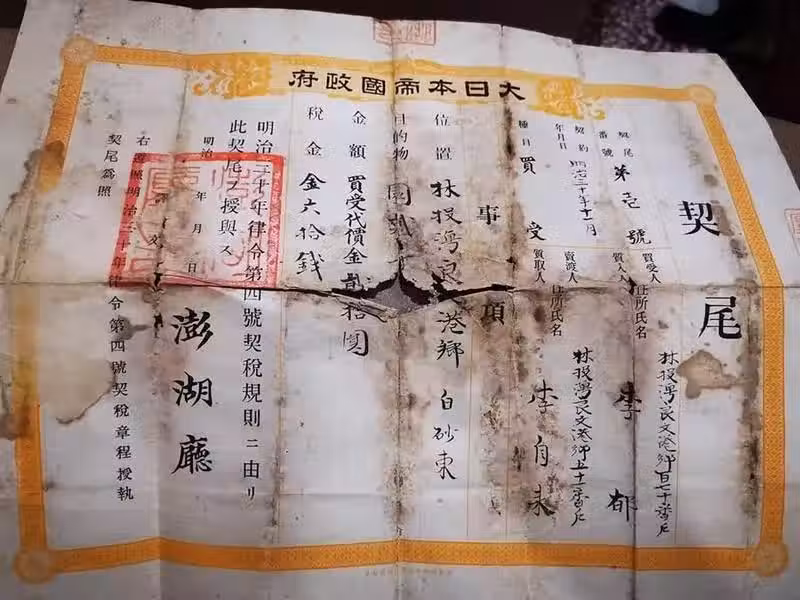 大日本帝國政府
契尾
契尾番號 第壱號
契約年月日 明治三十年十一月
種目 買受
買受人
質入人
住所氏名
林投灣良文港鄉百七十番戶
李郁
賣渡人
質取人
住所氏名
林投灣良文港鄉五十一番戶
李自未
事項
位置 林投灣良 港鄉 白砂東
目的物 園
金額 買受代價金貳拾圓
稅金 金六拾錢
明治三十年律令第四號契稅規則ニ由リ
此契尾ヲ授與ス
明治 年 月 日
澎湖廳
右 明治三十年律令第四號契稅章程授執
契尾為照